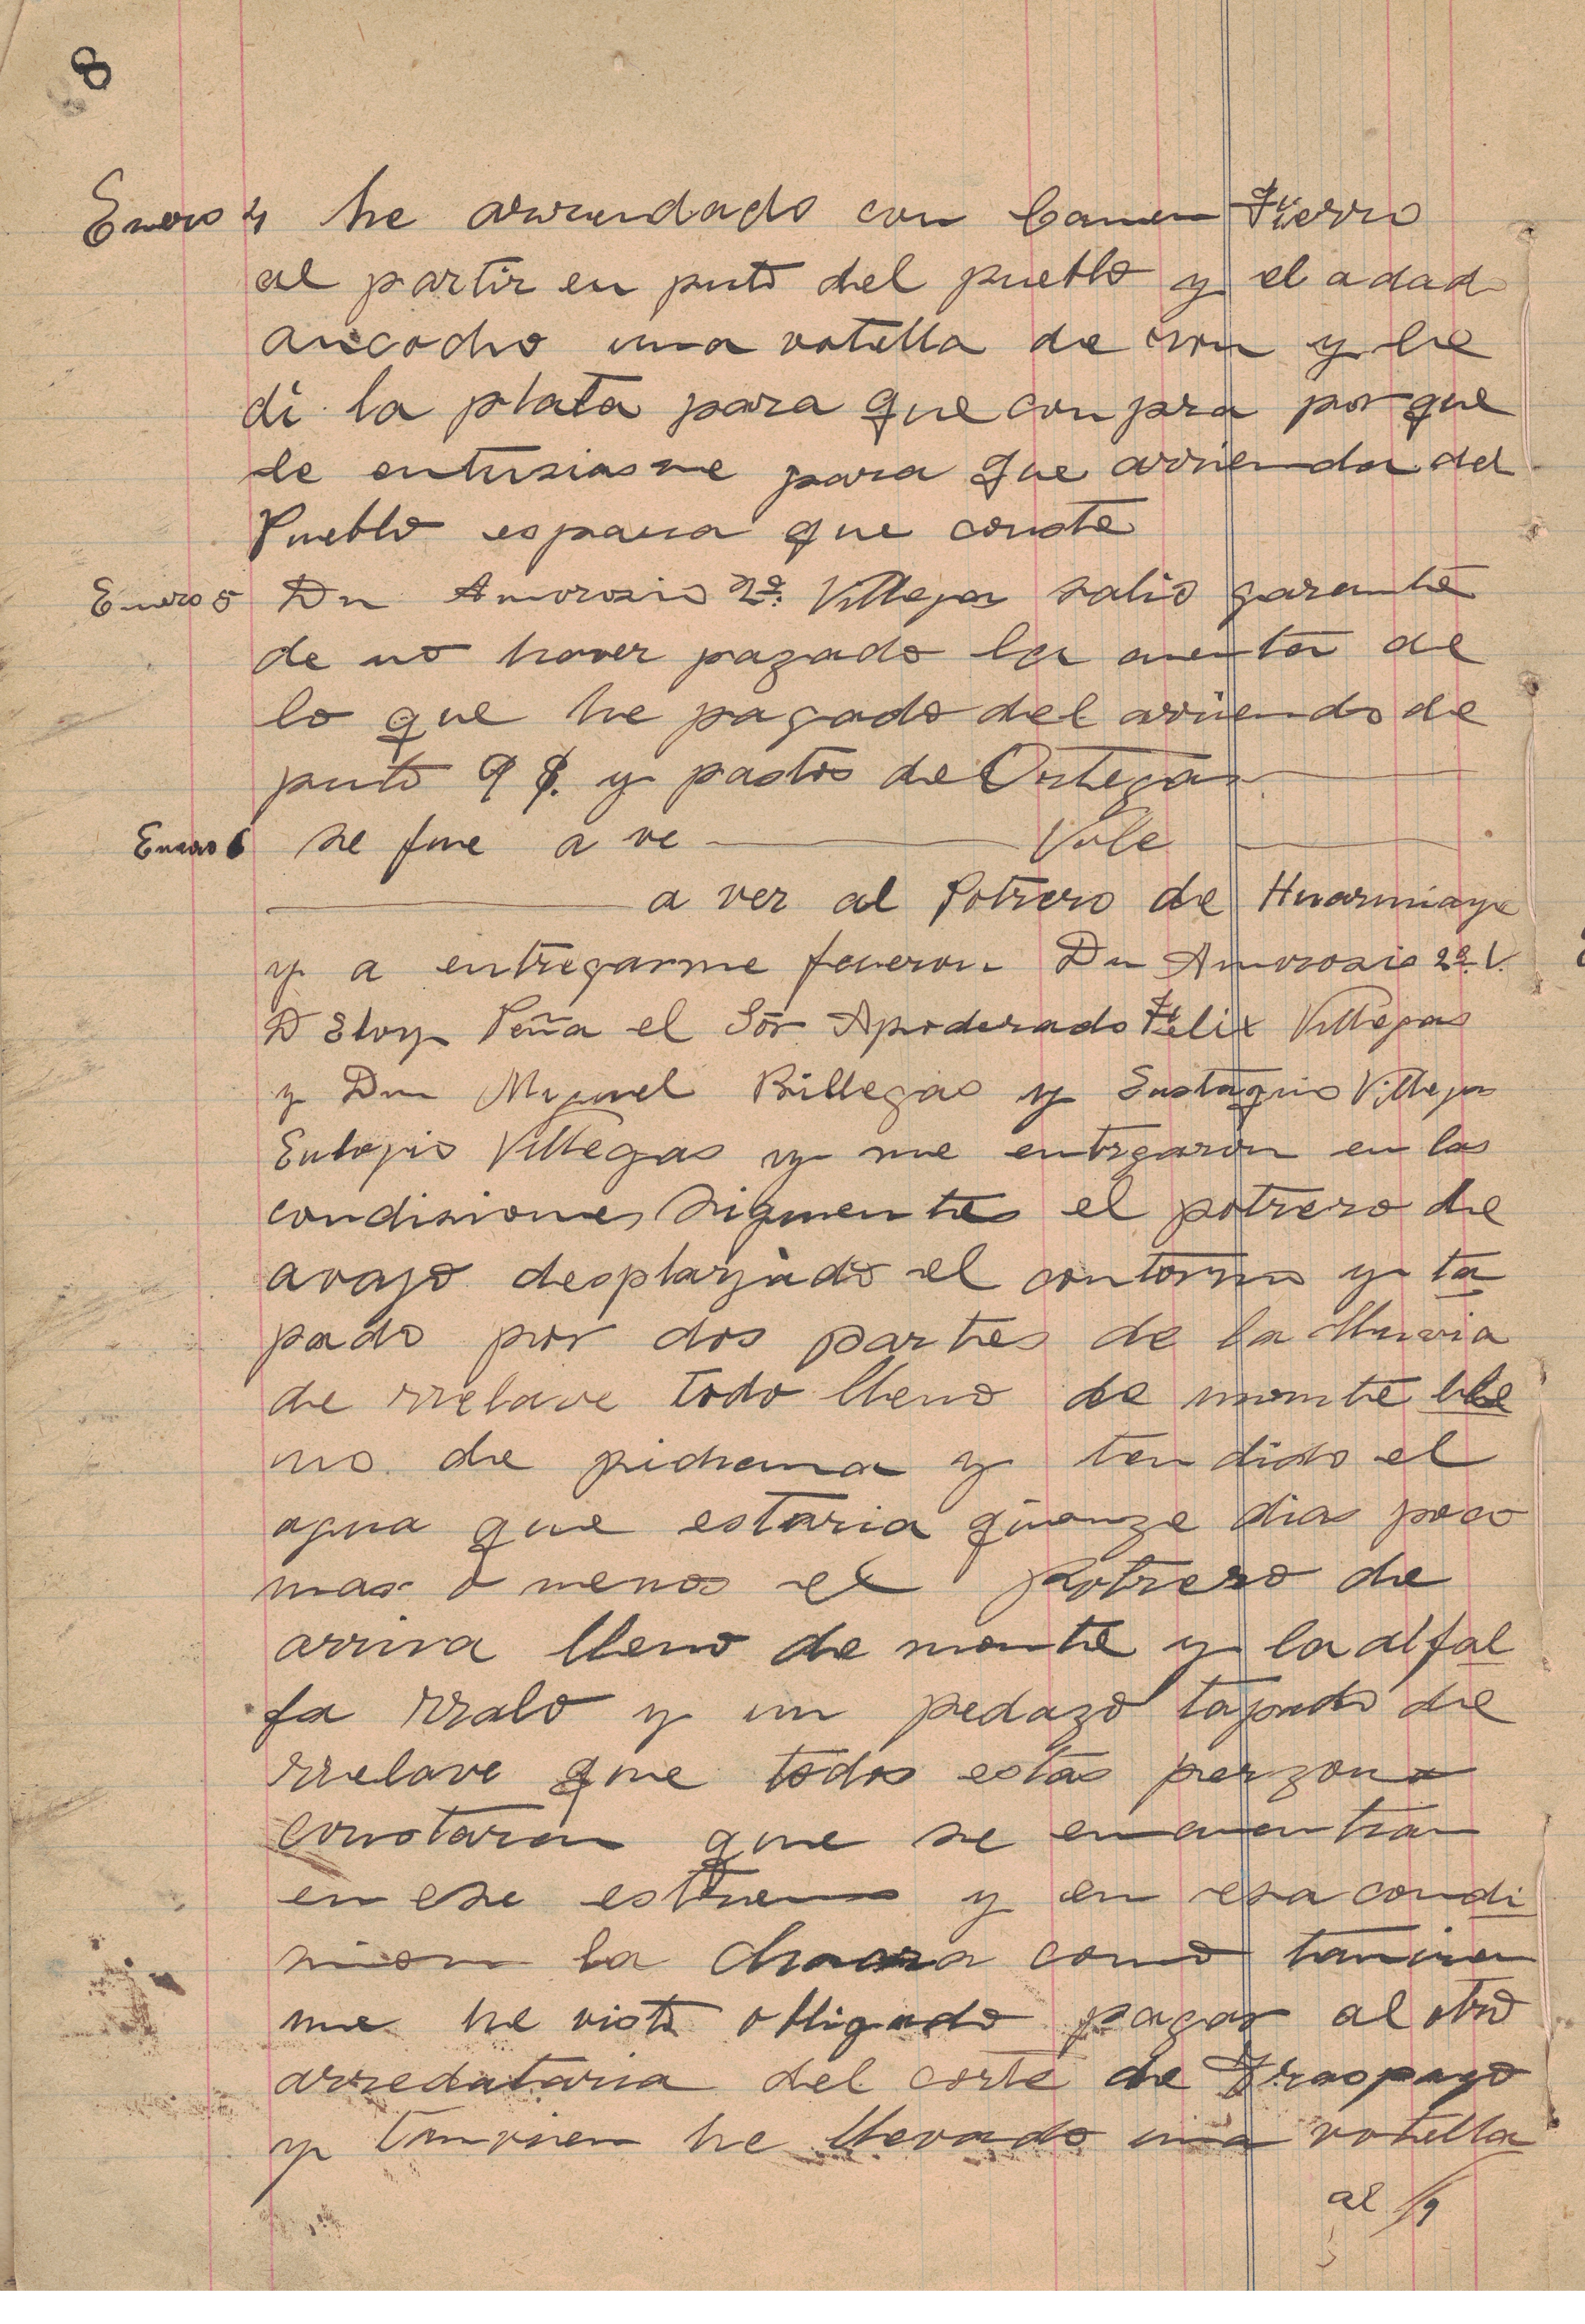 8
Enero 4 he arrendado con Camen Fierro
al partir en puto del pueblo y el adado
ancocho una votella de rron y le
di la plata para que conpra porque
le entusiasme para que arrienda del
Pueblo espara que conste
Enero 5 Dn Amorosio 2º Villegas salio garante
de no haver pagado la cuenta de
lo que he pagado del arriendo de
puto 9 $. y pastos de Ortegas
Enero 6 se fue a ve Vale
a ver al Potrero de Huarmiaya
y a entregarme fueron Dn Amorosio 2º V.
D Eloy Peña el Sór Apoderado Felix Villegas
y Dn Miguel Billegas y Eustaquio Villegas
Eulogio Villegas y me entrgaron en las
condisiones siguentes el potrero de
avajo desplayado el contorno y ta
pado por dos partes de la lluvia
de rrelave todo lleno de monte lle
no de pichana y tendido el
agua que estaria quenze dias poco
mas o menos el Potrero de
arriva lleno de monte y la alfal
fa rralo y un pedazo tapado de
rrelave que todos estas perzona
constaran que se encuentran
en ese estremo y en esa condi
sion la chacra como tanvien
me he visto obligado pagar al otro
arredataria del corte de Traspazo
y tanvien he llevado una votella
al /9